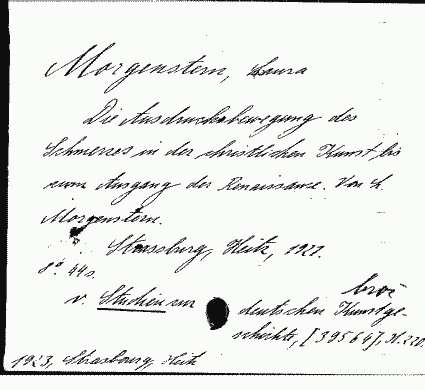 Morgenstern, Laura
Die Ausdrucksbewegung des
Schmerzes in der christlichen Kunst bis
zum Ausgang der Renaissance. Von L.
Morgenstern.
Strassburg, Heitz, 1921.
8°. 44 s.
broš
v. Studien zur deutschen Kunstge-
schichte, [39564], H. 220.
1923, Strasbourg, Heitz